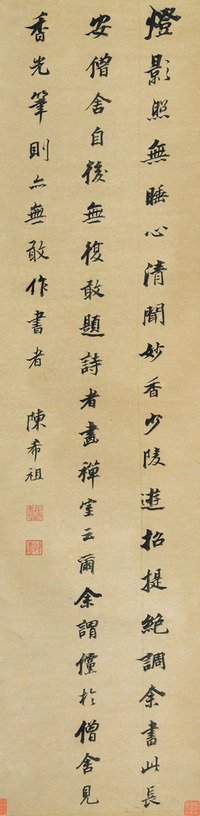 燈影照無睡心清聞妙香少陵遊招提絕調余書此長
安僧舍自後無復敢題詩者畫禪室云爾余謂懂於僧舍見
香光筆則亦無敢作書者
陳希祖